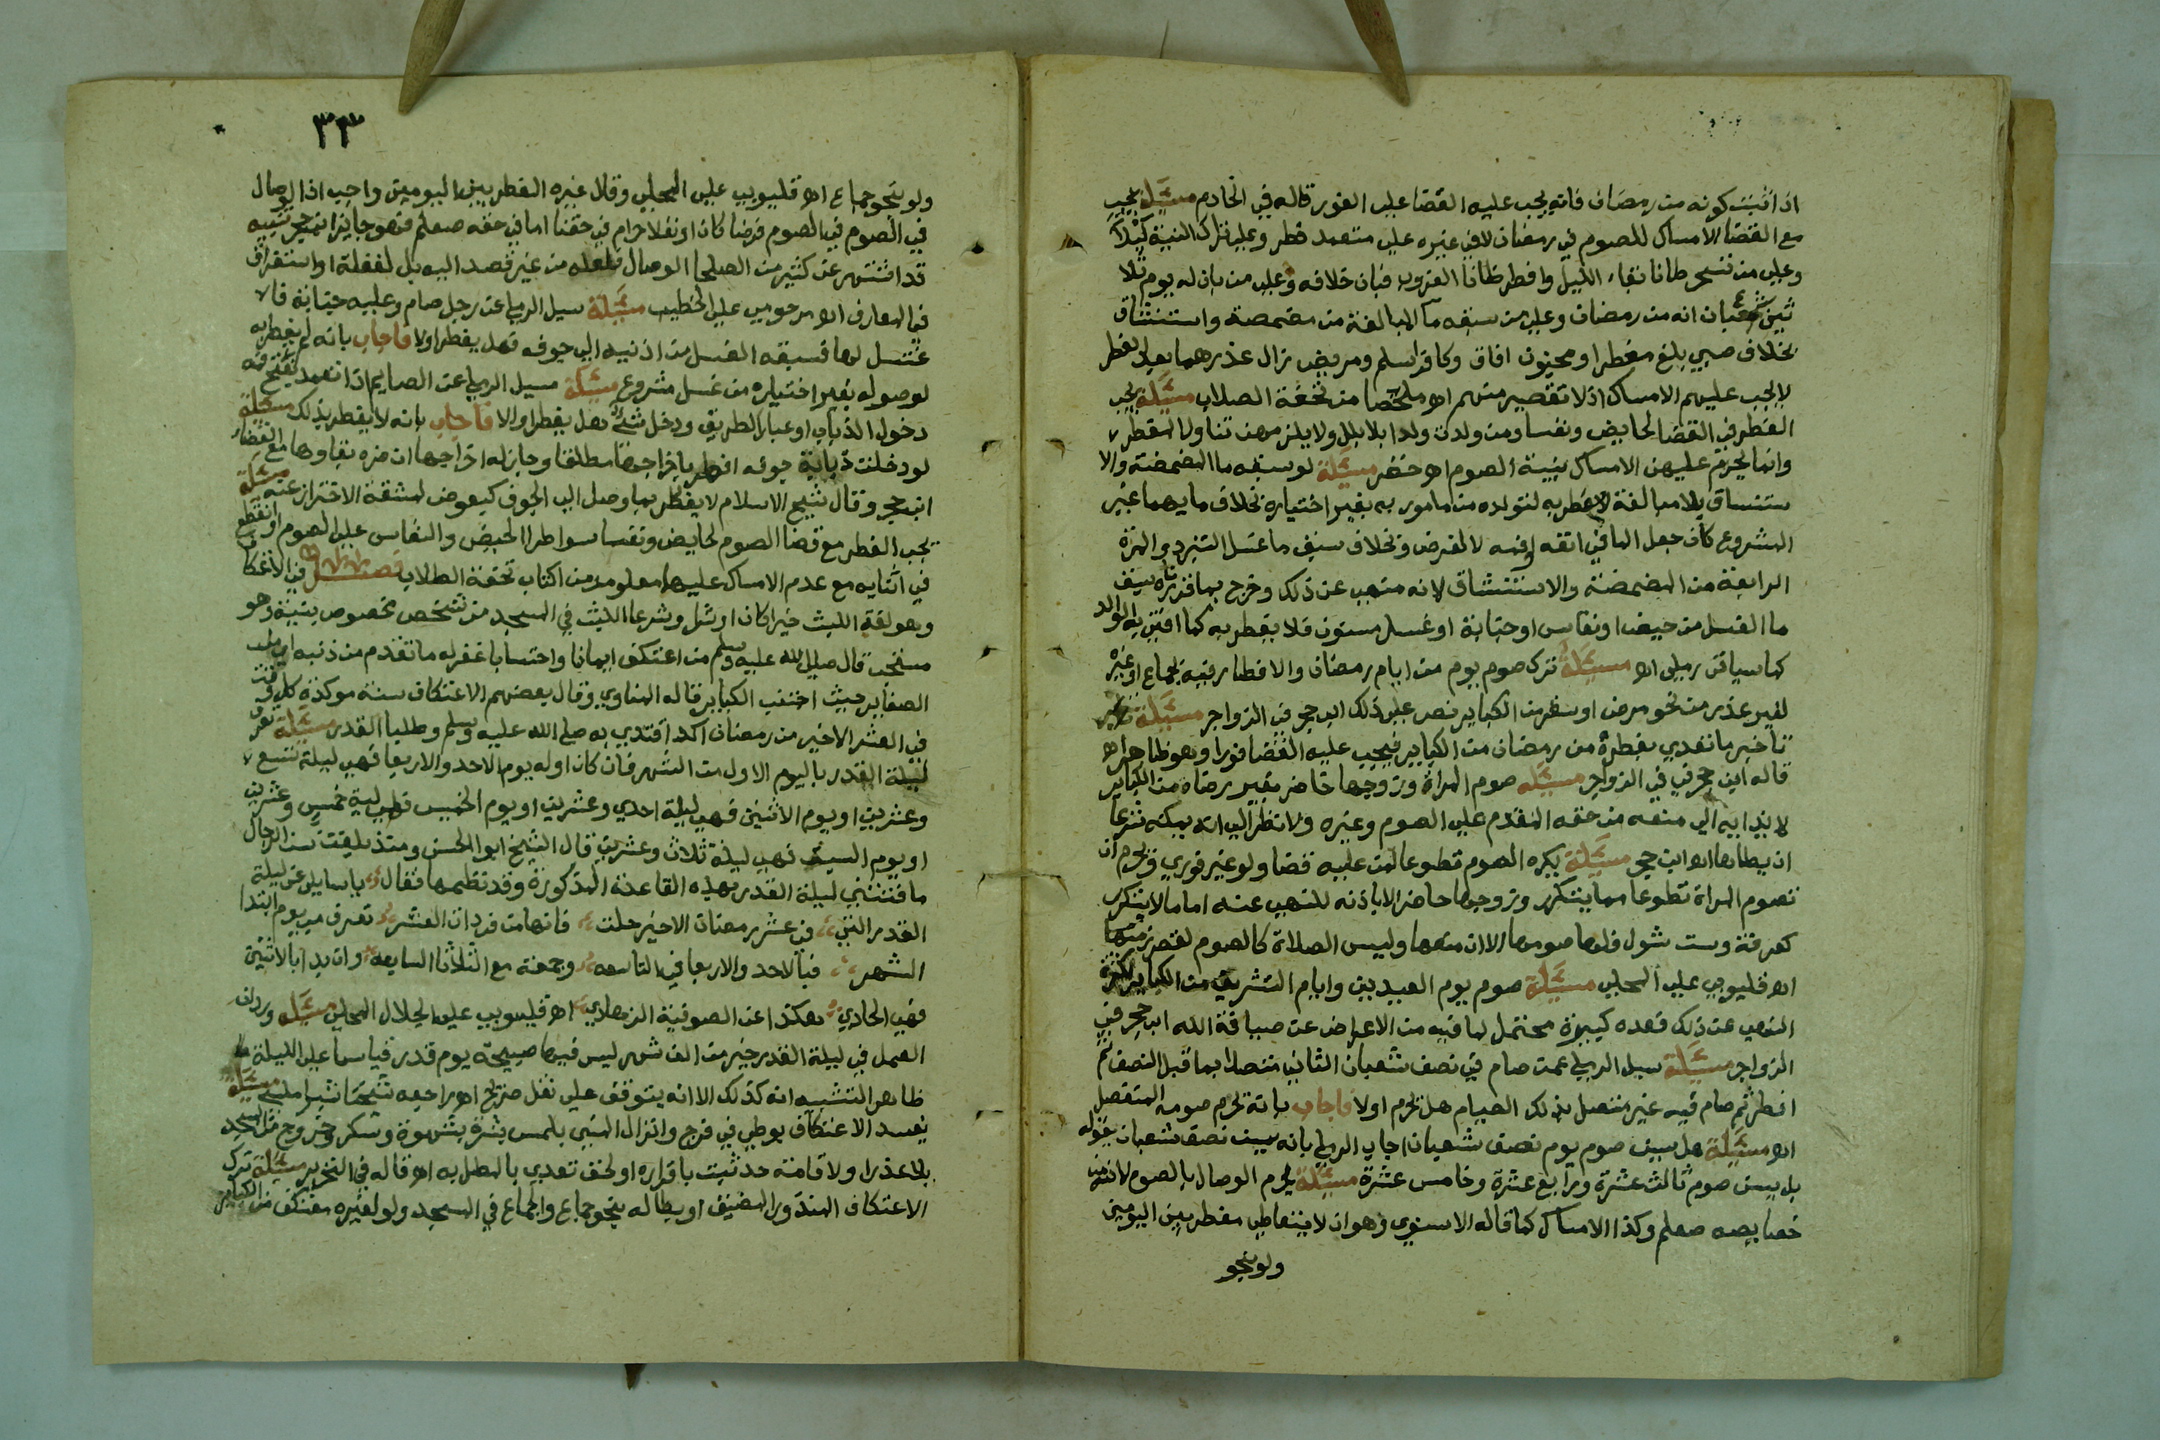 اذا ثبت كونه من رمضان فانه يجب عليه القضا على الفور قاله في الخادم مسئلة يجب
مع القضا الامساك للصوم في رمضان لا في غيره على متعمد فطر وعلى تارك النية ليلا
وعلى من تسحر ظانا بقاء الليل وافطر ظانا الغروب فبان خلافه وعلى من بان له يوم ثلا
ثين شعبان انه من رمضان وعلى من سبقه ما المبالغة من مضمضة واستنشاق
بخلاف صبي بلغ مفطرا ومجنون افاق وكافر اسلم ومريض زال عذرهما بعد الفطر
لا يجب عليهم الامساك اذ لا تقصير منهم اهـ ملخصا من تحفة الطلاب مسئلة يجب
الفطر في القضا لحايض ونفسا ومن ولدت ولدا بلا بلل ولا يلزمهن تناول المفطر
وانما يحرم عليهن الامساك بنية الصوم اهـ خضر مسئلة لو سبقه ما المضمضة والا
ستنشاق بلا مبالغة لا يفطر به لتولده من مامور به بغير اختياره بخلاف ما بهما غير
المشروع كان جعل الما في انفه او فمه لا لغرض وبخلاف سبق ما غسل التبرد والمرة
الرابعة من المضمضة والاستنشاق لانه منهى عن ذلك وخرج بما قررناه سبق
ما الغسل من حيض او نفاس او جنابة او غسل مسنون فلا يفطر به كما افتى به الوالد
كما سياتى رملى اهـ مسئلة ترك صوم يوم من ايام رمضان والافطار فيه بجماع او غيره
لغير عذر من نحو مرض او سفر من الكباير نص على ذلك ابن حجر في الزواجر مسئلة
تاخير ما تعدي بفطره من رمضان من الكباير فيجب عليه القضا فورا وهو ظاهر اهـ
قاله ابن حجر في الزواجر مسئله صوم المراة وزوجها حاضر بغير رضاه من الكباير
لا يذايه الى منعه من حقه المقدم على الصوم وغيره ولا نظر الى انه يمكنه شرعا
ان يطاها اهـ ابن حجر مسئلة يكره الصوم تطوعا لمن عليه قضا ولو غير فوري ويحرم ان
تصوم المراة تطوعا مما يتكرر وزوجها حاضر الا باذنه للنهي عنه اما ما لا يتكرر
كعرفة وست شول فلها صومها الا ان منعها وليس الصلاة كالصوم لقصر زمنها
اهـ قليوبي على المحلى مسئلة صوم يوم العيدين وايام التشريق من الكباير
النهي عن ذلك فعده كبيرة محتمل لما فيه من الاعراض عن ضيافة الله ابن حجر في
الزواجر مسئلة سيل الرملي عمن صام في نصف شعبان الثاني متصلا بما قبل النصف ثم
افطر ثم صام فيه غير متصل بذلك الصيام هل يحرم اولا فاجاب بانه يحرم صومه المنفصل
اهـ مسئلة هل يسن صوم يوم نصف شعبان اجاب الرملي بانه يسن نصف شعبان بقوله
بل يسن صوم ثالث عشرة ورابع عشرة وخامس عشرة مسئلة يحرم الوصال بالصوم لانه من
خصايصه صعلم وكذا الامساك كما قاله الاسنوي وهو ان لا يتعاطى مفطر بين اليومين
ولو بنحو
٣٣
ولو بنحو جماع اهـ قليوبي على المحلي وقال غيره الفطر بين اليومين واجب اذ الوصال
في الصوم فرضا كان او نفلا حرام في حقنا اما في حقه صعلم فهو جايز انتهى تنبيه
قد اشتهر عن كثير من الصلحا الوصال فلعله من غير قصد اليه بل لغفلة او استغراق
في المعارف اهـ مرحومي على الخطيب مسئلة سيل الرملي عن رجل صام وعليه جنابة فا
غتسل لها فسبقه الغسل من اذنيه الى جوفه فهل يفطر اولا فاجاب بانه لم يفطر به
لوصوله بغير اختياره من غسل مشروع مسئلة سيل الرملي عن الصايم اذا تعمد بفتح فمه
دخول الذباب او غبار الطريق ودخل شئ هل يفطر او لا فاجاب بانه لا يفطر بذلك مسئلة
لو دخلت ذبابة جوفه افطر باخراجها مطلقا وجاز له اخراجها ان ضره بقاوها مع القضا
ابن حجر وقال شيخ الاسلام لا يفطر بما وصل الى الجوف كبعوض لمشقة الاحتراز عنه مسئلة
يجب الفطر مع قضا الصوم لحايض ونفسا سوا طرا الحيض والنفاس على الصوم او انقطع
في اثنايه مع عدم الامساك عليها معلوم من كتاب تحفة الطلاب فصل في الاعتكاف
وهو لغة اللبث خيرا كان او شرا وشرعا اللبث في المسجد من شخص مخصوص بنية وهو
مستحب قال صلى الله عليه وسلم من اعتكف ايمانا واحتسابا غفر له ما تقدم من ذنبه اي من
الصغاير حيث اجتنب الكباير قاله المناوي وقال بعضهم الاعتكاف سنة موكدة كل وقت
في العشر الاخير من رمضان اكد اقتدي به صلى الله عليه وسلم وطلبا القدر مسئلة تعرف
ليلة القدر باليوم الاول من الشهر فان كان اوله يوم الاحد والاربعا فهي ليلة تسع
وعشرين او يوم الاثنين فهي ليلة احدي وعشرين او يوم الخميس فهي ليلة خمس وعشرين
او يوم السبت فهي ليلة ثلاث وعشرين قال الشيخ ابو الحسن ومنذ بلغت سن الرجال
ما فتتني ليلة القدر بهذه القاعدة المذكورة وقد نظمها فقال يا سايلى عن ليلة
القدر التي في عشر رمضان الاخير حلت فانها من فردات العشر تعرف من يوم ابتدا
الشهر فبالاحد والاربعا في التاسعه وجمعة مع الثلاثا السابعه وان بدا بالاثنين
فهي الحادي هكذا عن الصوفية الزهاد اهـ قليوبي على الجلال المحلى مسئلة ورد ان
العمل في ليلة القدر خير من الف شهر ليس فيها صبيحة يوم قدر قياسا على الليلة
ظاهر التشبيه انه كذلك الا انه يتوقف على نقل صريح اهـ راجعه شيخنا شبراملسي مسئلة
يفسد الاعتكاف بوطي في فرج وانزال المني بلمس بشرة بشهوة وسكر وخروج من المسجد
بلا عذر او لاقامة حد ثبت باقراره او لحق تعدي بالمطل به اهـ قاله في التحرير مسئلة ترك
الاعتكاف المنذور المضيق او بطاله بنحو جماع والجماع في المسجد ولو لغيره معتكف من الكباير